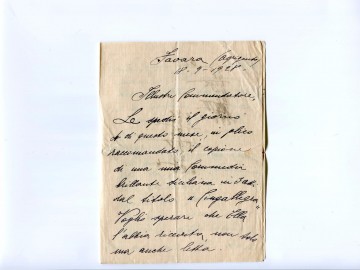 Favara (Agrigento)
18-9-1928-
Illustre Commendatore,
Le spedii il giorno
4 di questo mese, in plico
raccomandato, il copione
di una mia Commedia
brillante siciliana in 3 atti
dal titolo "
Voglio sperare che Ella
l'abbia ricevuta, non solo
ma anche letta.